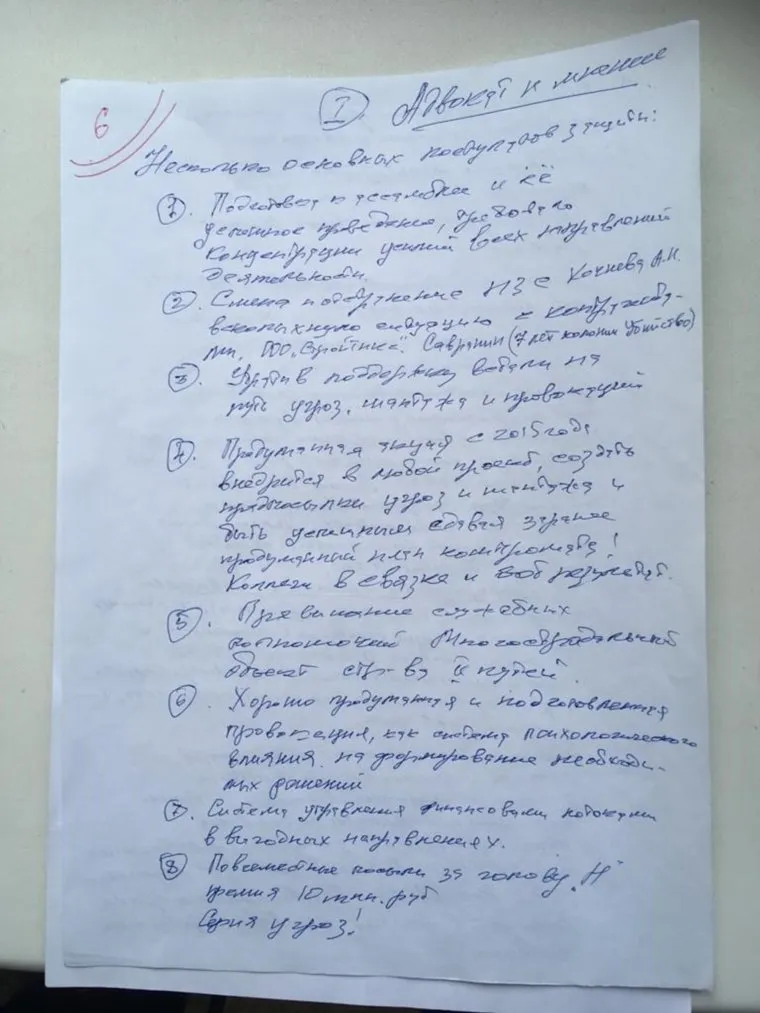 6
I Адвокат и мнение
Несколько основных постулатов защиты:
1. Подготовка к ассамблее и её
успешное проведение, требовало
концентрации усилий всех направлений
деятельности.
2. Смена и Кочнева А.Н.
ситуацию с
ООО Саврянин (7 лет колонии Убийство)
3. поддержку встали на
путь угроз, шантажа и провокаций
4. Продуманная акция с 2015 года
внедрится в любой проект, создать
предпосылки угроз и шантажа и
быть успешным заранее
продуманный план компромата!
Коллеги в связке и
5. Превышение служебных
полномочий Многострадальный
объект стр-ва II путей.
6. Хорошо продуманная и подготовленная
провокация, как система психологического
влияния на формирование необходи-
мых решений
7. Система управления финансовыми потоками
в выгодных направлениях.
8. Повсеместные посылы за голову "Н"
премия 10 млн. руб
Серия угроз!